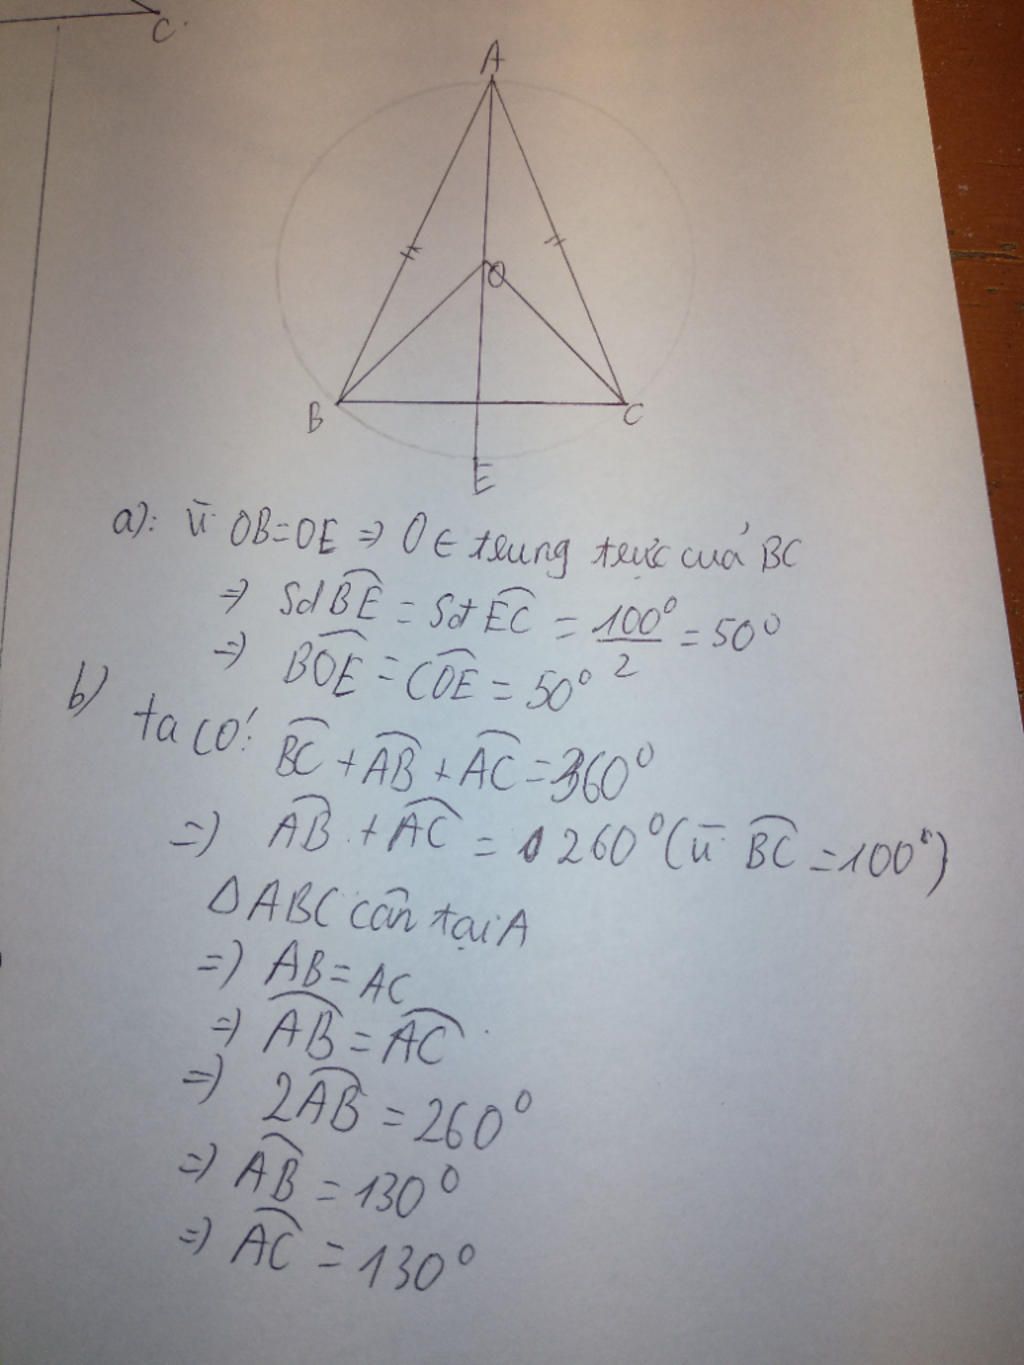 C
A
O
B
C
E
a): vì OB=OE => O ∈ trung trực của BC
=> Sđ B͡E = Sđ E͡C = 100°/2 = 50°
=> B͡OE = C͡OE = 50°
b) ta có:
B͡C + A͡B + A͡C = 360°
=> A͡B + A͡C = 260° (vì B͡C = 100°)
ΔABC cân tại A
=> AB = AC
=> A͡B = A͡C
=> 2A͡B = 260°
=> A͡B = 130°
=> A͡C = 130°